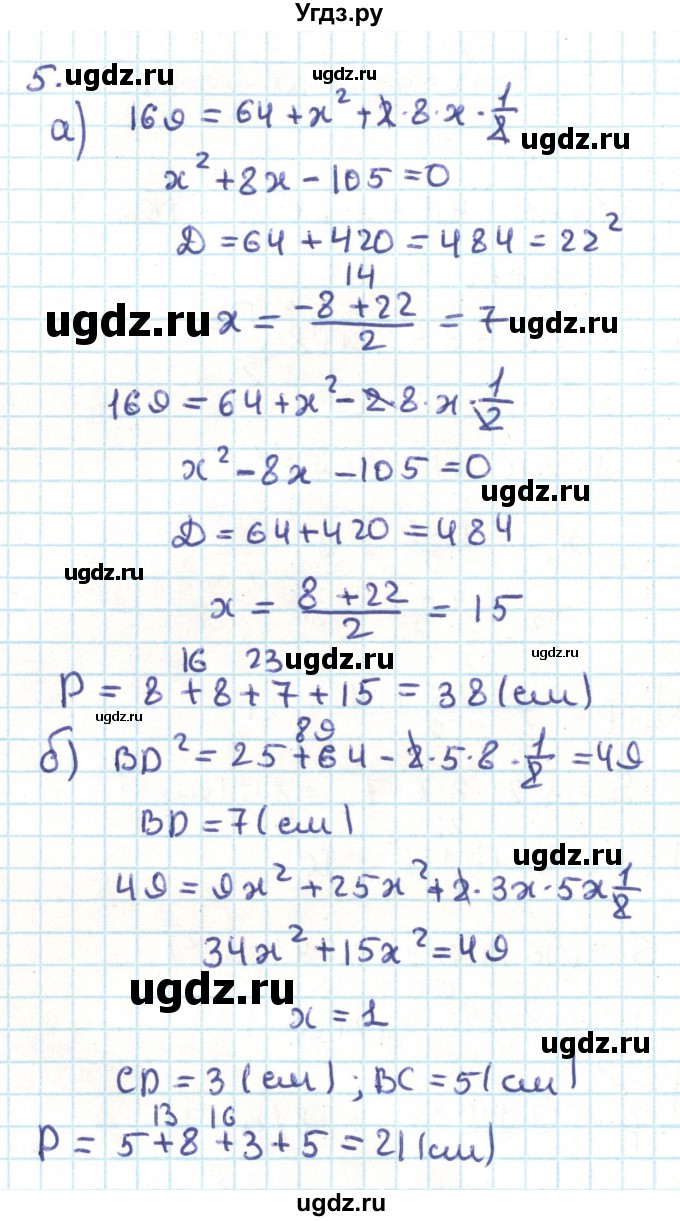 Угдз.ру
5. ugdz.ru ugdz.ru
а) 169 = 64 + x² + 2·8·x·1/2
ugdz.ru
x² + 8x - 105 = 0
Д = 64 + 420 = 484 = 22²
14
ugdz.ru x = (-8 + 22)/2 = 7 ugdz.ru
169 = 64 + x² - 2·8·x·1/2
x² - 8x - 105 = 0
ugdz.ru
Д = 64 + 420 = 484
ugdz.ru
x = (8 + 22)/2 = 15
16 23 ugdz.ru ugdz.ru
P = 8 + 8 + 7 + 15 = 38 (см)
ugdz.ru
89
б) BD² = 25 + 64 - 2·5·8·1/2 = 49
BD = 7 (см)
ugdz.ru
49 = 9x² + 25x² + 2·3x·5x 1/2
34x² + 15x² = 49
ugdz.ru
x = 1
ugdz.ru
CD = 3 (см); BC = 5 (см)
13 16
P = 5 + 8 + 3 + 5 = 21 (см)
ugdz.ru